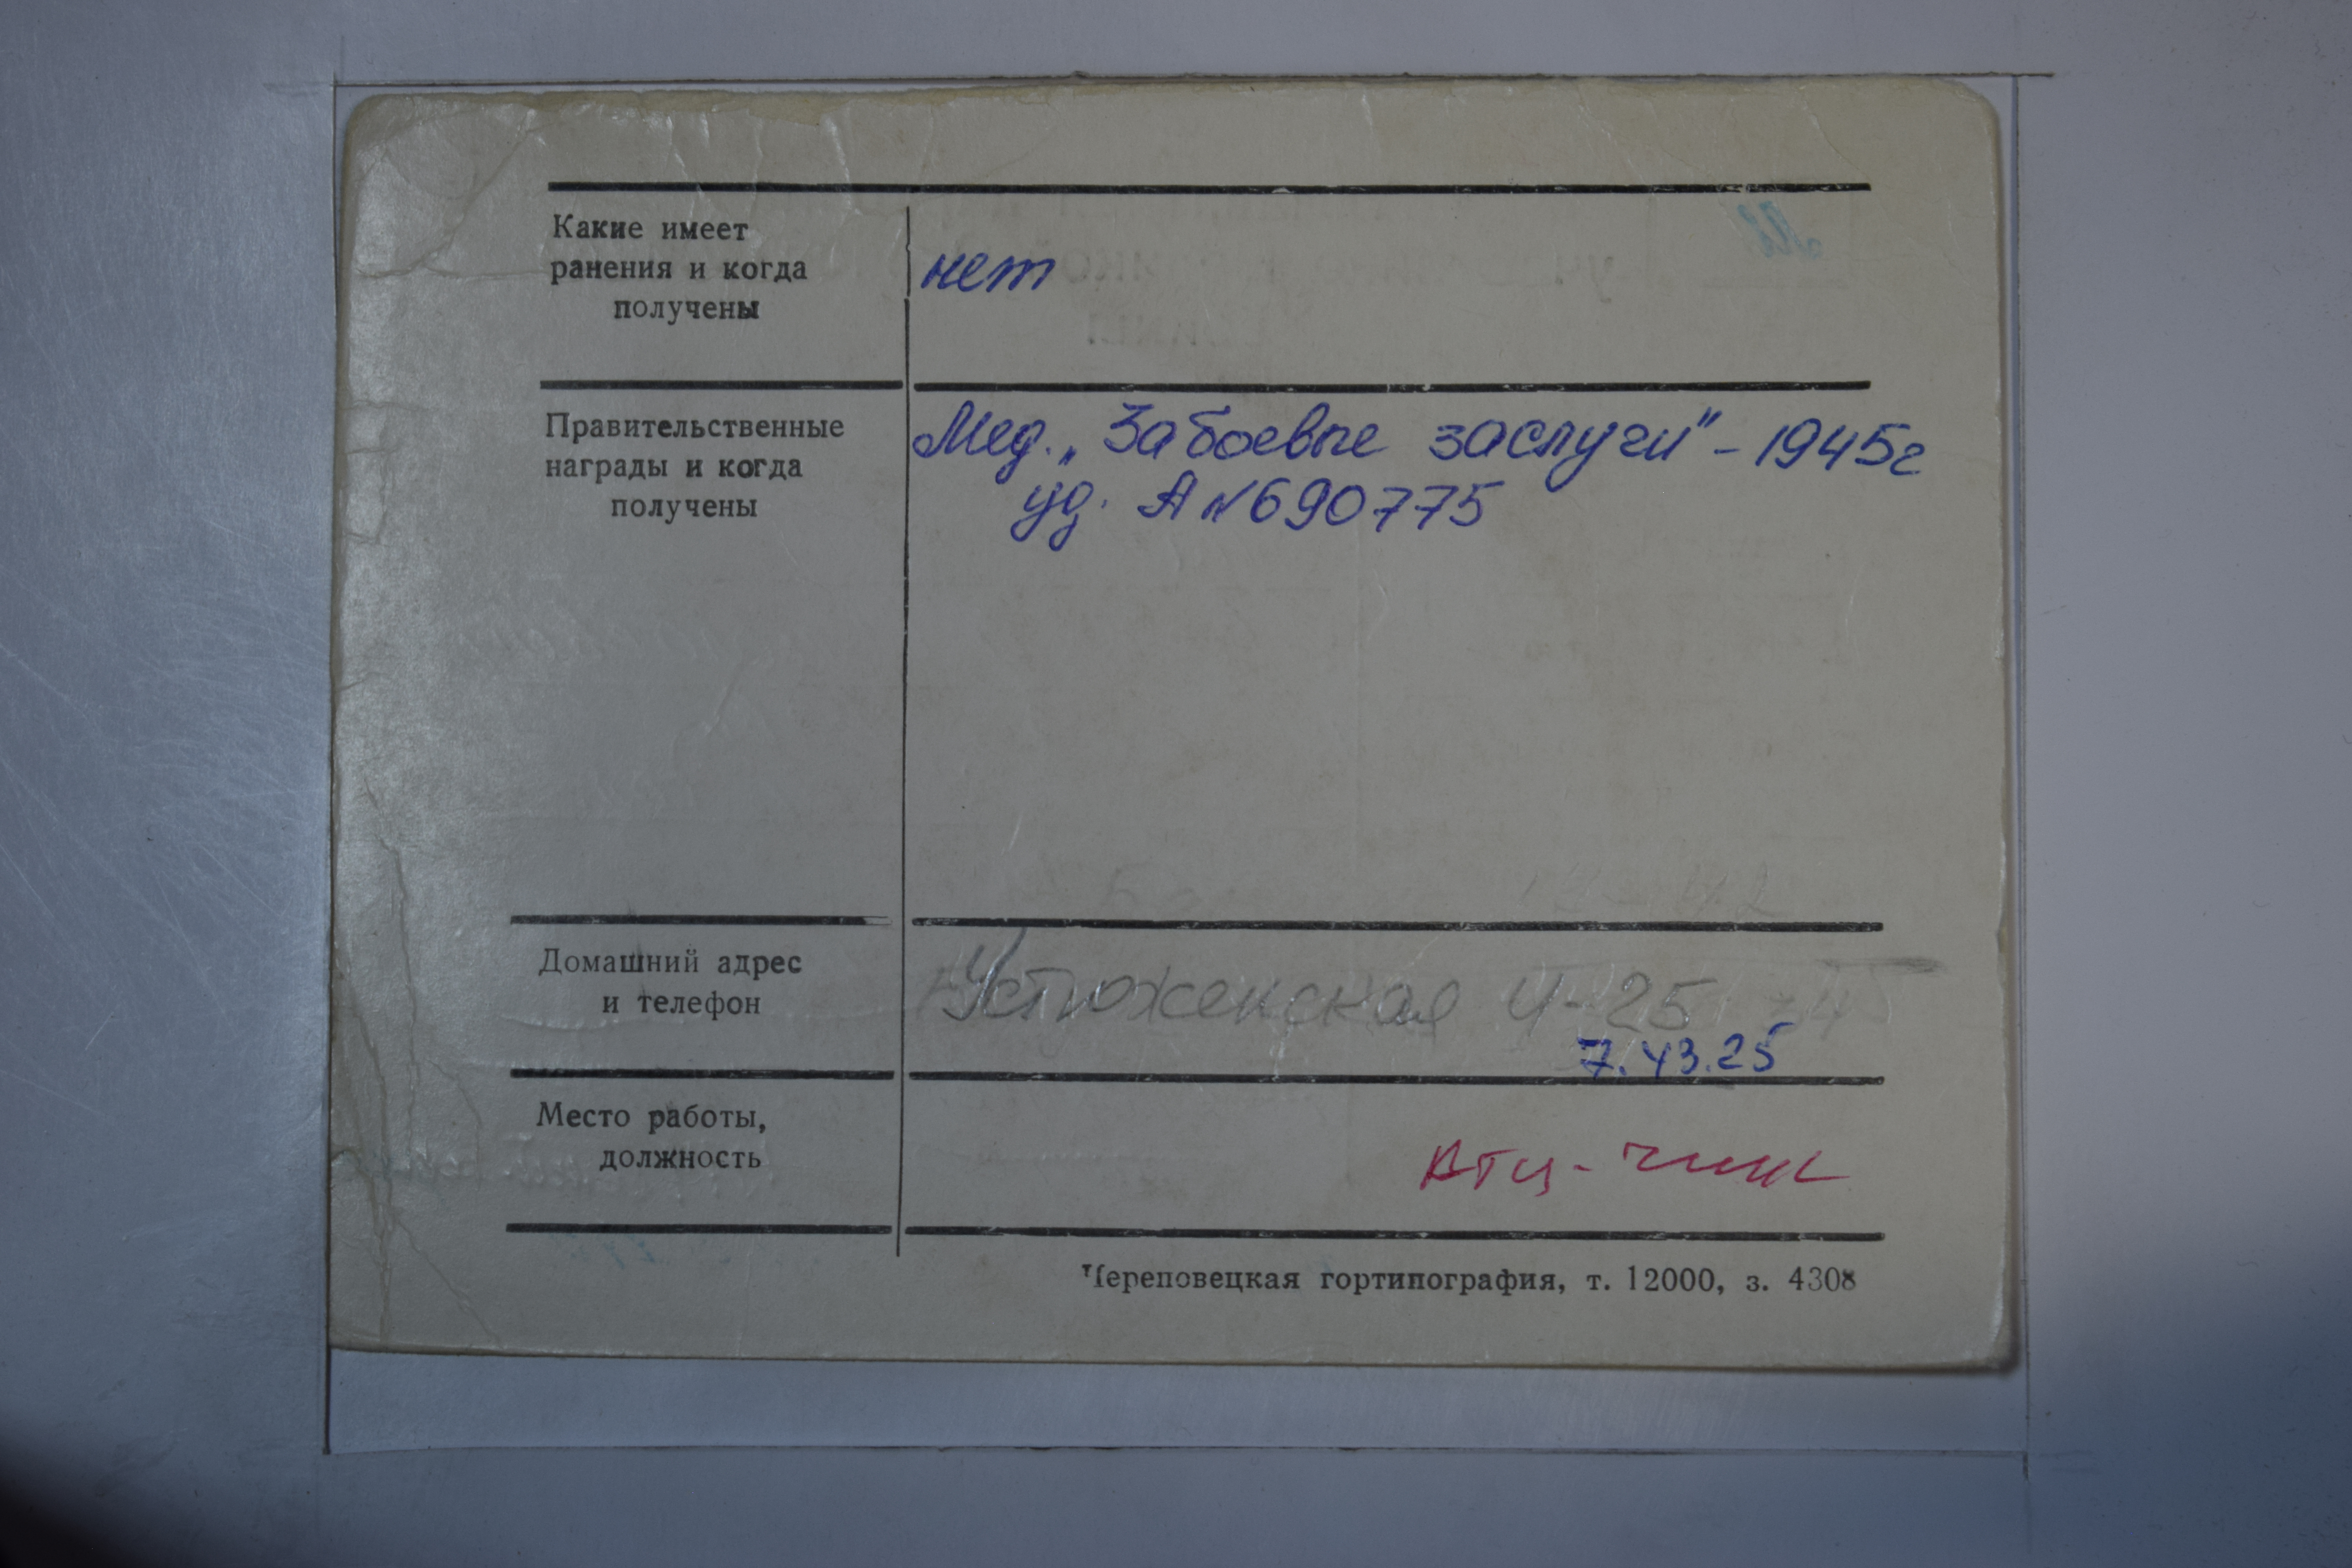 Какие имеет
ранения и когда
получены
нет
Правительственные
награды и когда
получены
Мед. „За боевые заслуги" - 1945г
уд. А №690775
Домашний адрес
и телефон
Устюженская 4-25
7.43.25
Место работы,
должность
Череповецкая гортипография, т. 12000, з. 4308